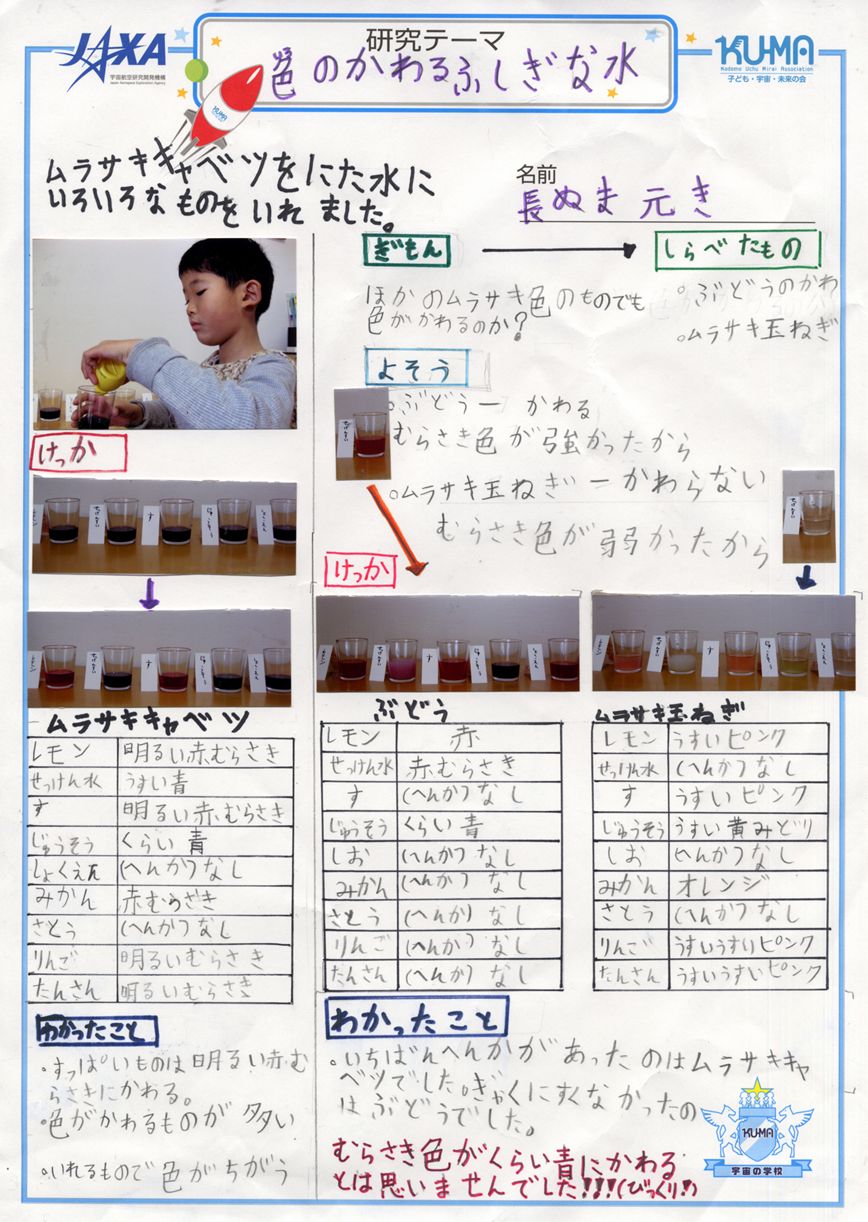 JAXA
宇宙航空研究開発機構
Japan Aerospace Exploration Agency
研究テーマ
色のかわるふしぎな水
KU-MA
Kodomo Uchu Mirai Association
子ども・宇宙・未来の会
KU-MA
ムラサキキャベツをにた水に
いろいろなものをいれました。
名前
長ぬま元き
ぎもん
しらべたもの
ほかのムラサキ色のものでも
色がかわるのか?
。ぶどうのかわ
。ムラサキ玉ねぎ
よそう
。ぶどうーかわる
むらさき色が強かったから
。ムラサキ玉ねぎーかわらない
むらさき色が弱かったから
けっか
す
けっか
す
す
す
ムラサキキャベツ
レモン 明るい赤むらさき
せっけん水 うすい青
す 明るい赤むらさき
じゅうそう くらい青
しょくえん (へんか)なし
みかん 赤むらさき
さとう (へんか)なし
りんご 明るいむらさき
たんさん 明るいむらさき
ぶどう
レモン 赤
せっけん水 赤むらさき
す (へんか)なし
じゅうそう くらい青
しお (へんか)なし
みかん (へんか)なし
さとう (へんか)なし
りんご (へんか)なし
たんさん (へんか)なし
ムラサキ玉ねぎ
レモン うすいピンク
せっけん水 (へんか)なし
す うすいピンク
じゅうそう うすい黄みどり
しお (へんか)なし
みかん オレンジ
さとう (へんか)なし
りんご うすいうすいピンク
たんさん うすいうすいピンク
わかったこと
。すっぱいものは明るい赤む
らさきにかわる。
。色がかわるものが多い
。いれるもので色がちがう
わかったこと
。いちばんへんかがあったのはムラサキキャ
ベツでした。ぎゃくにすくなかったの
はぶどうでした。
むらさき色がくらい青にかわる
とは思いませんでした!!!(びっくり!!)
KU-MA
宇宙の学校